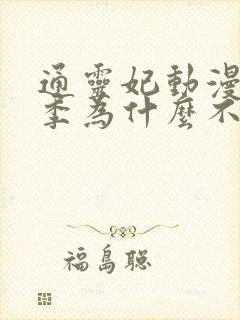 通靈妃動漫
季為什麼不
福島聰